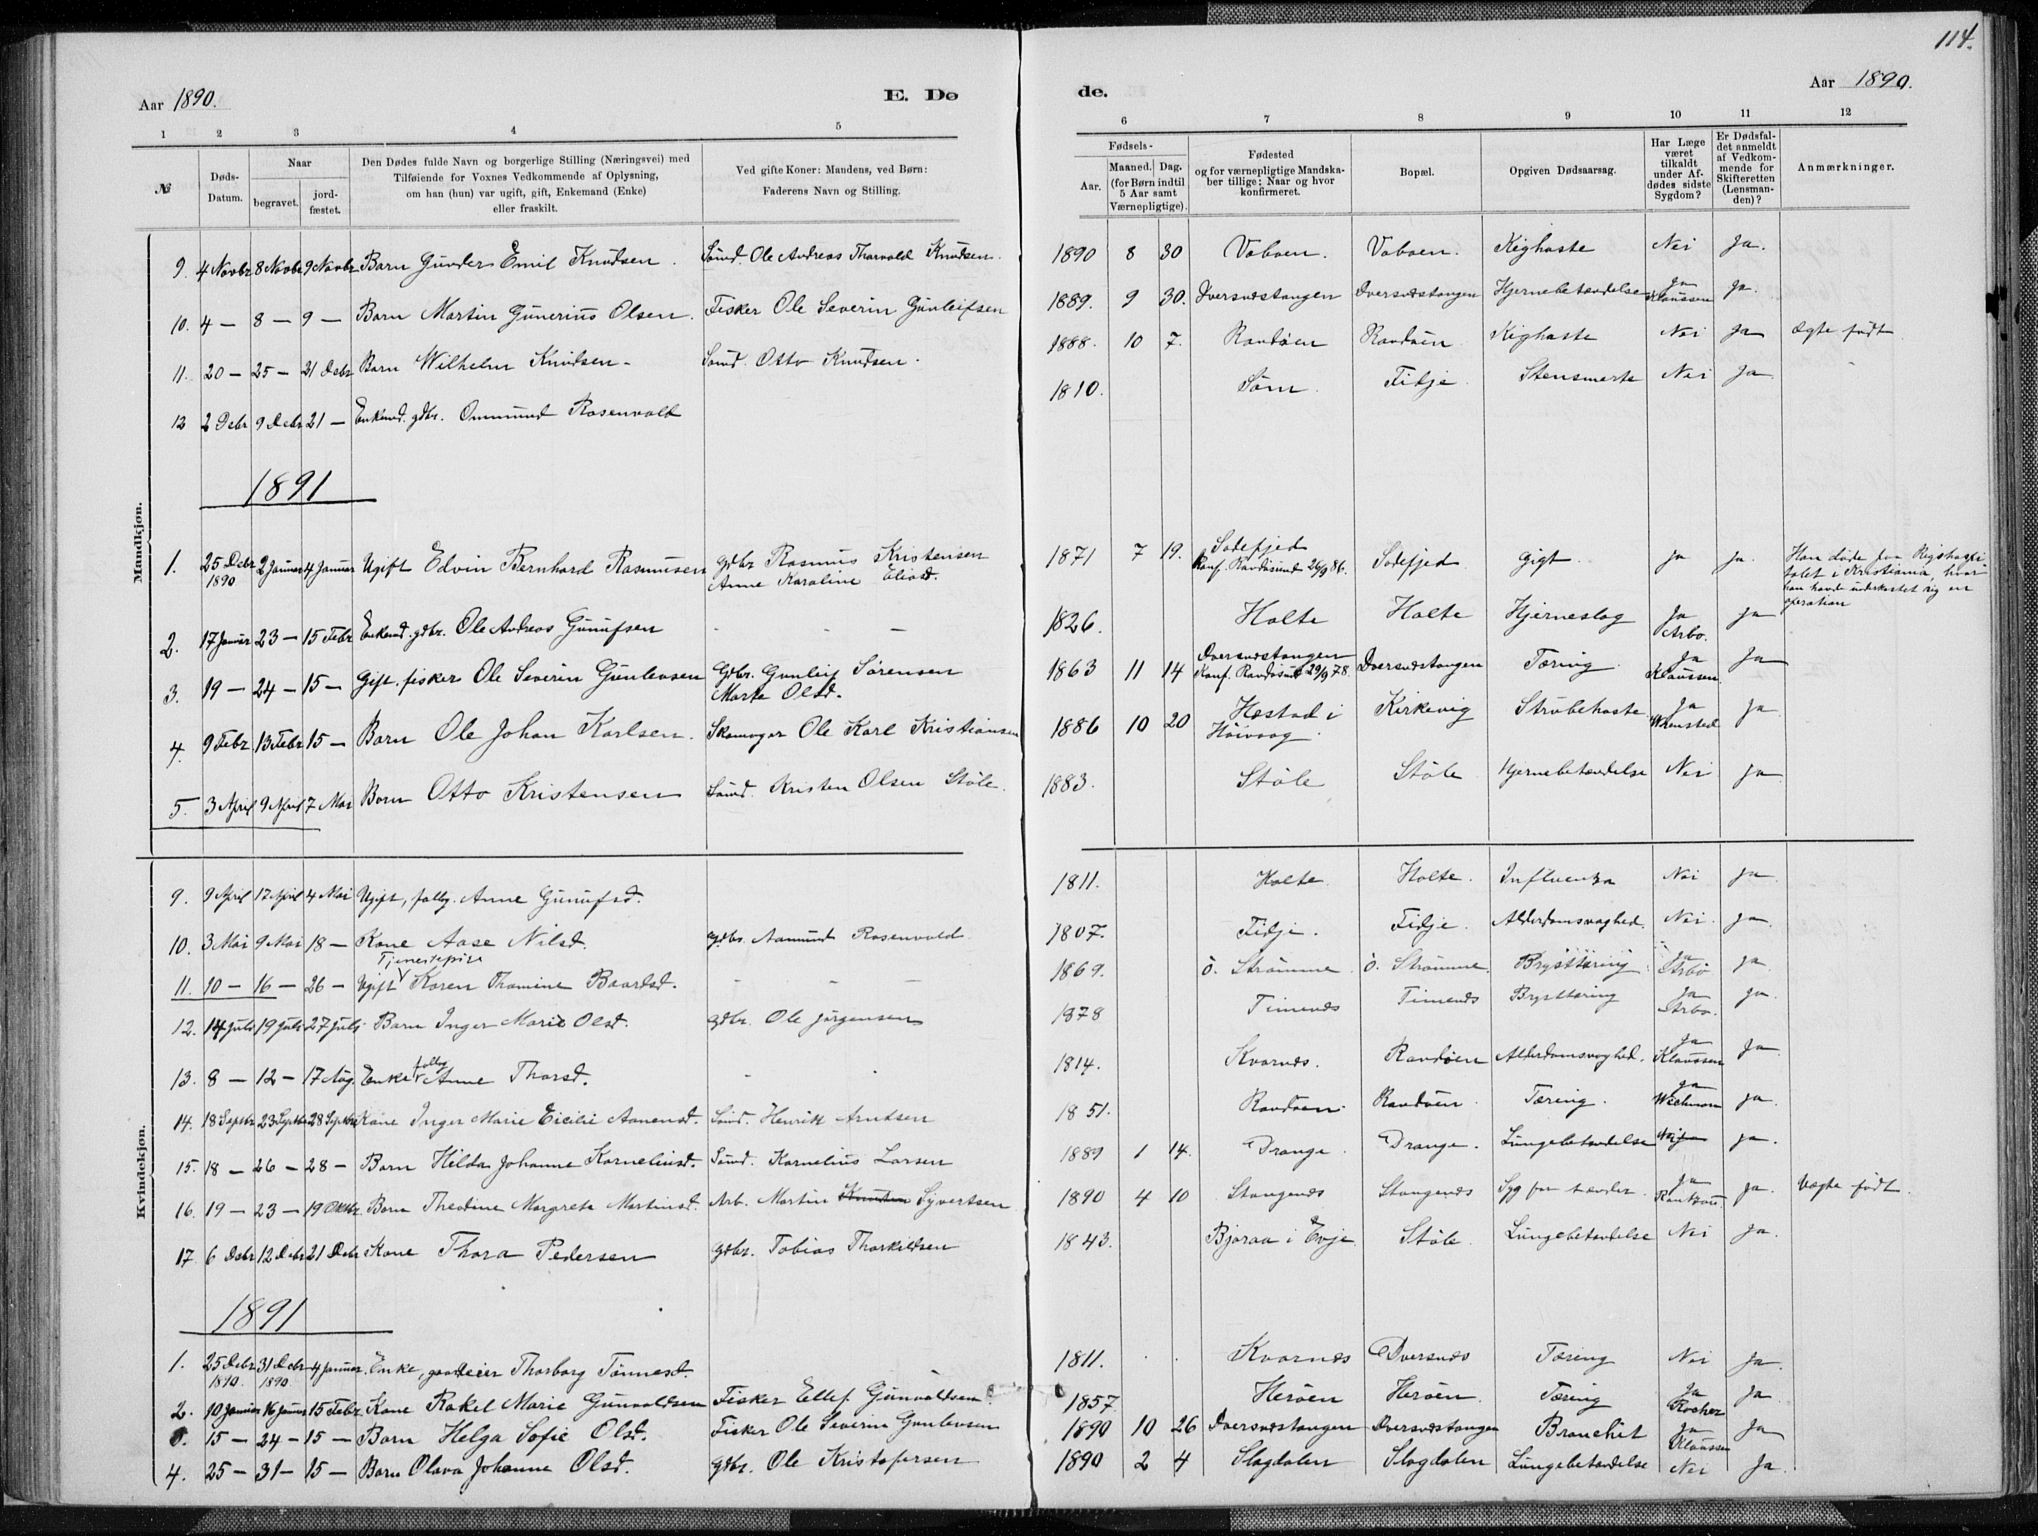 114.
Aar 1890. E. Dø
de. Aar 1890.
1 2 3 4 5
6 7 8 9 10 11 12
№
Døds-
Datum.
Naar
begravet.
jord-
fæstet.
Den Dødes fulde Navn og borgerlige Stilling (Næringsvei) med
Tilføiende for Voxnes Vedkommende af Oplysning,
om han (hun) var ugift, gift, Enkemand (Enke)
eller fraskilt.
Ved gifte Koner: Mandens, ved Børn:
Faderens Navn og Stilling.
Fødsels-
Aar.
Maaned. Dag.
(for Børn indtil
5 Aar samt
Værnepligtige).
Fødested
og for værnepligtige Mandska-
ber tillige: Naar og hvor
konfirmeret.
Bopæl.
Opgiven Dødsaarsag.
Har Læge
været
tilkaldt
under Af-
dødes sidste
Sygdom?
Er Dødsfal-
det anmeldt
af Vedkom-
mende for
Skifteretten
(Lensman-
den)?
Anmærkninger.
Mandkjøn.
9. 4 Novbr 8 Novbr 9 Novbr Barn Gunder Emil Knudsen. Sømd. Ole Andreas Thorvald Knudsen. 1890 8 30 Vaboen. Vaboen. Kighoste Nei Ja.
10. 4 — 8 — 9 — Barn Martin Gunerius Olsen. Fisker Ole Severin Gunleifsen 1889. 9 30. Dversnæstangen Dversnæstangen Hjernebetændelse Ja Klaussen Ja.
11. 20 — 25 — 21 Debr Barn Wilhelm Knudsen — Sømd. Otto Knudsen. 1888. 10 7. Randøen Randøen Kighoste Nei Ja ægte født
12 2 Debr 9 Debr 21 — Enkemd. gdbr. Ommund Rosenvold 1810. Søm. Fidje. Stensmerte Nei Ja.
1891
1. 25 Debr 1890 2 Januar 4 Januar Ugift Edvin Bernhard Rasmusen Gdbr Rasmus Kristensen
Anne Karoline Eliasd. 1871 7 19. Sodefjed
Konf. Randøsund 26/9 86. Sodefjed Gigt. Ja Ja. Han døde paa Rigshospi
talet i Kristiania, hvor
han havde underkastet sig en
operation
2. 17 Januar 23 — 15 Febr Enkemd. gdbr. Ole Andreas Gunufsen — — — 1826. Holte Holte Hjerneslag Ja
Arbo. Ja
3. 19 — 24 — 15 — Gift. fisker Ole Severin Gunlevsen Gdbr. Gunleif Sørensen
Marte Olsd. 1863 11 14 Dversnæstangen
Konf. Randøsund 29/9 78. Dversnæstangen Tæring. Ja
Klaussen. Ja
4. 9 Febr 13 Febr 15 — Barn Ole Johan Karlsen. Skomager Ole Karl Kristiansen 1886 10 20 Hæstad i
Høivaag. Kirkevig Strubehoste Ja Ja
5. 3 April 9 April 7 Mai Barn Otto Kristensen Sømd. Kristen Olsen Støle. 1883. Støle Støle Hjernebetændelse Nei Ja
Kvindekjøn.
9. 9 April 17 April 4 Mai Ugift, fattig. Anne Gunufsd. 1811. Holte Holte. Influenza Nei Ja
10. 3 Mai 9 Mai 18 — Kone Aase Nilsd. Gdbr. Aamund Rosenvold 1807. Fidje. Fidje. Alderdomssvaghed. Nei. Ja.
Tjenestepige
11. 10 — 16 — 26 — Ugift Karen Thomine Baardsd. — — — 1869. ö. Strømme. ö. Strømme. Brysttæring. Ja
Arbo Ja
12. 14 Juli 19 Juli 27 Juli Barn Inger Marie Olsd. Gdbr. Ole Jørgensen 1878 Timenes Timenes Brysttæring Ja
Arbo. Ja.
13. 8 — 12 — 17 Aug. Enke fattig Anne Thorsd. 1814. Kvarnes. Randøen Alderdomssvaghed. Ja
Klaussen Ja.
14. 18 Septbr 23 Septbr 28 Septbr Kone Inger Marie Cicilie Aanensd. Sømd. Henrik Arntsen 1851. Randøen. Randøen. Tæring. Ja Ja.
15. 18 — 26 — 28 — Barn Hilda Johanne Korneliusd. Sømd. Kornelius Larsen 1889 1 14. Drange. Drange. Lungebetændelse Nei Ja.
16. 19 — 23 — 19 Oktbr. Barn Theodine Margrete Martinsd. Arb. Martin Sivertsen 1890 4 10 Stangenes Stangenes Syg for tænder. Ja
Rantzau Ja. Uægte født.
17. 6 Debr 12 Debr 21 Debr Kone Thora Pedersen Gdbr. Tobias Thorkildsen 1843. Bjoraa i Evje Støle. Lungebetændelse Nei Ja.
1891
1. 25 Debr 1890 31 Debr 1890 4 Januar. Enke, gaardeier Thorborg Tønnesd. 1811. Kvarnes Dversnes Tæring Nei Ja.
2. 10 Januar 16 Januar 15 Febr Kone Rakel Marie Gunvaldsen Fisker Ellef Gunvaldsen. 1857. Herøen Herøen. Tæring Ja Ja
15 — 24 — 15 — Barn Helga Sofie Olsd. Fisker Ole Severin Gunlevsen 1890 10 26 Dversnæstangen Dversnæstangen Bronchit Ja
Klaussen Ja
4. 25 — 31 — 15 — Barn Olava Johanne Olsd. Gdbr. Ole Kristofersen 1890 2 4 Slogdalen Slogdalen Lungebetændelse Nei Ja.